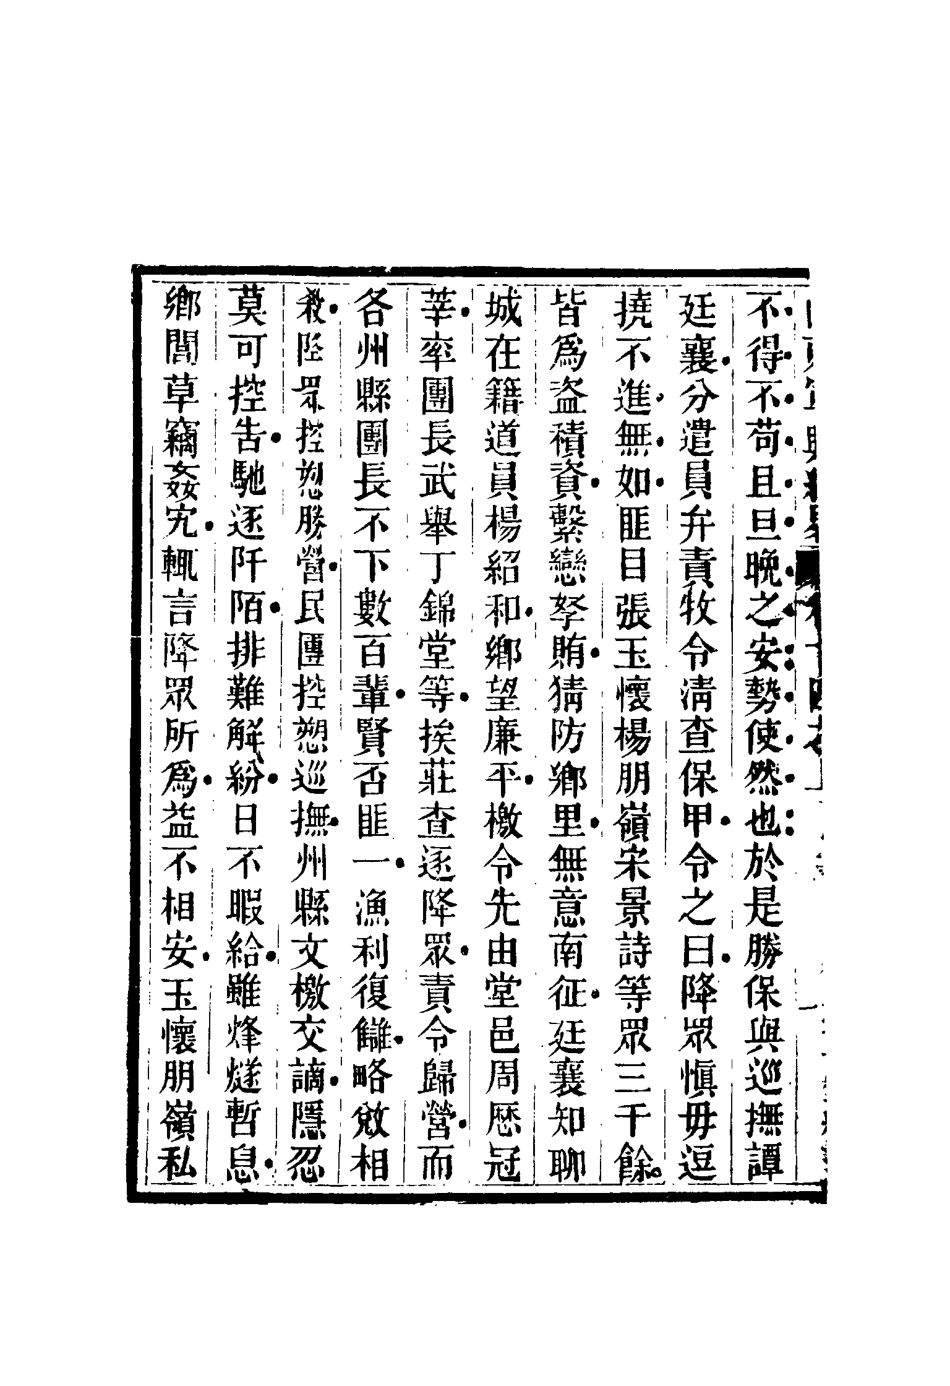 不得不苟且旦晚之安勢使然也於是勝保與巡撫譚
廷襄分遣員弁責牧令淸查保甲令之曰降眾愼毋逗
撓不進無如匪目張玉懷楊朋嶺宋景詩等眾三千餘
皆爲盜積資繫戀孥賄猜防鄉里無意南征廷襄知聊
城在籍道員楊紹和鄉望廉平檄令先由堂邑周歷冠
莘率團長武舉丁錦堂等挨莊查逐降眾責令歸營而
各州縣團長不下數百輩賢否匪一漁利復讎略敓相
殺降眾控愬勝營民團控愬巡撫州縣文檄交謫隱忍
莫可控告馳逐阡陌排難解紛日不暇給雖烽燧暫息
鄉閭草竊姦宄輒言降眾所爲益不相安玉懷朋嶺私